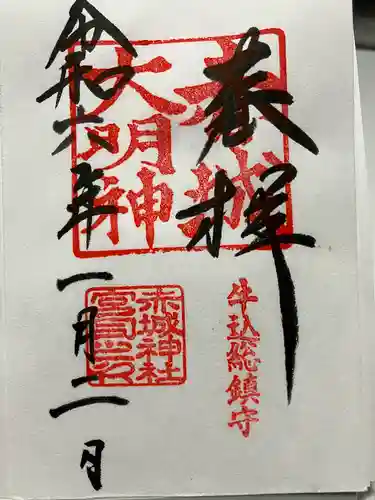 奉拝
赤城
大明神
牛込総鎮守
令和六年一月二日
赤城神社
宮司之印